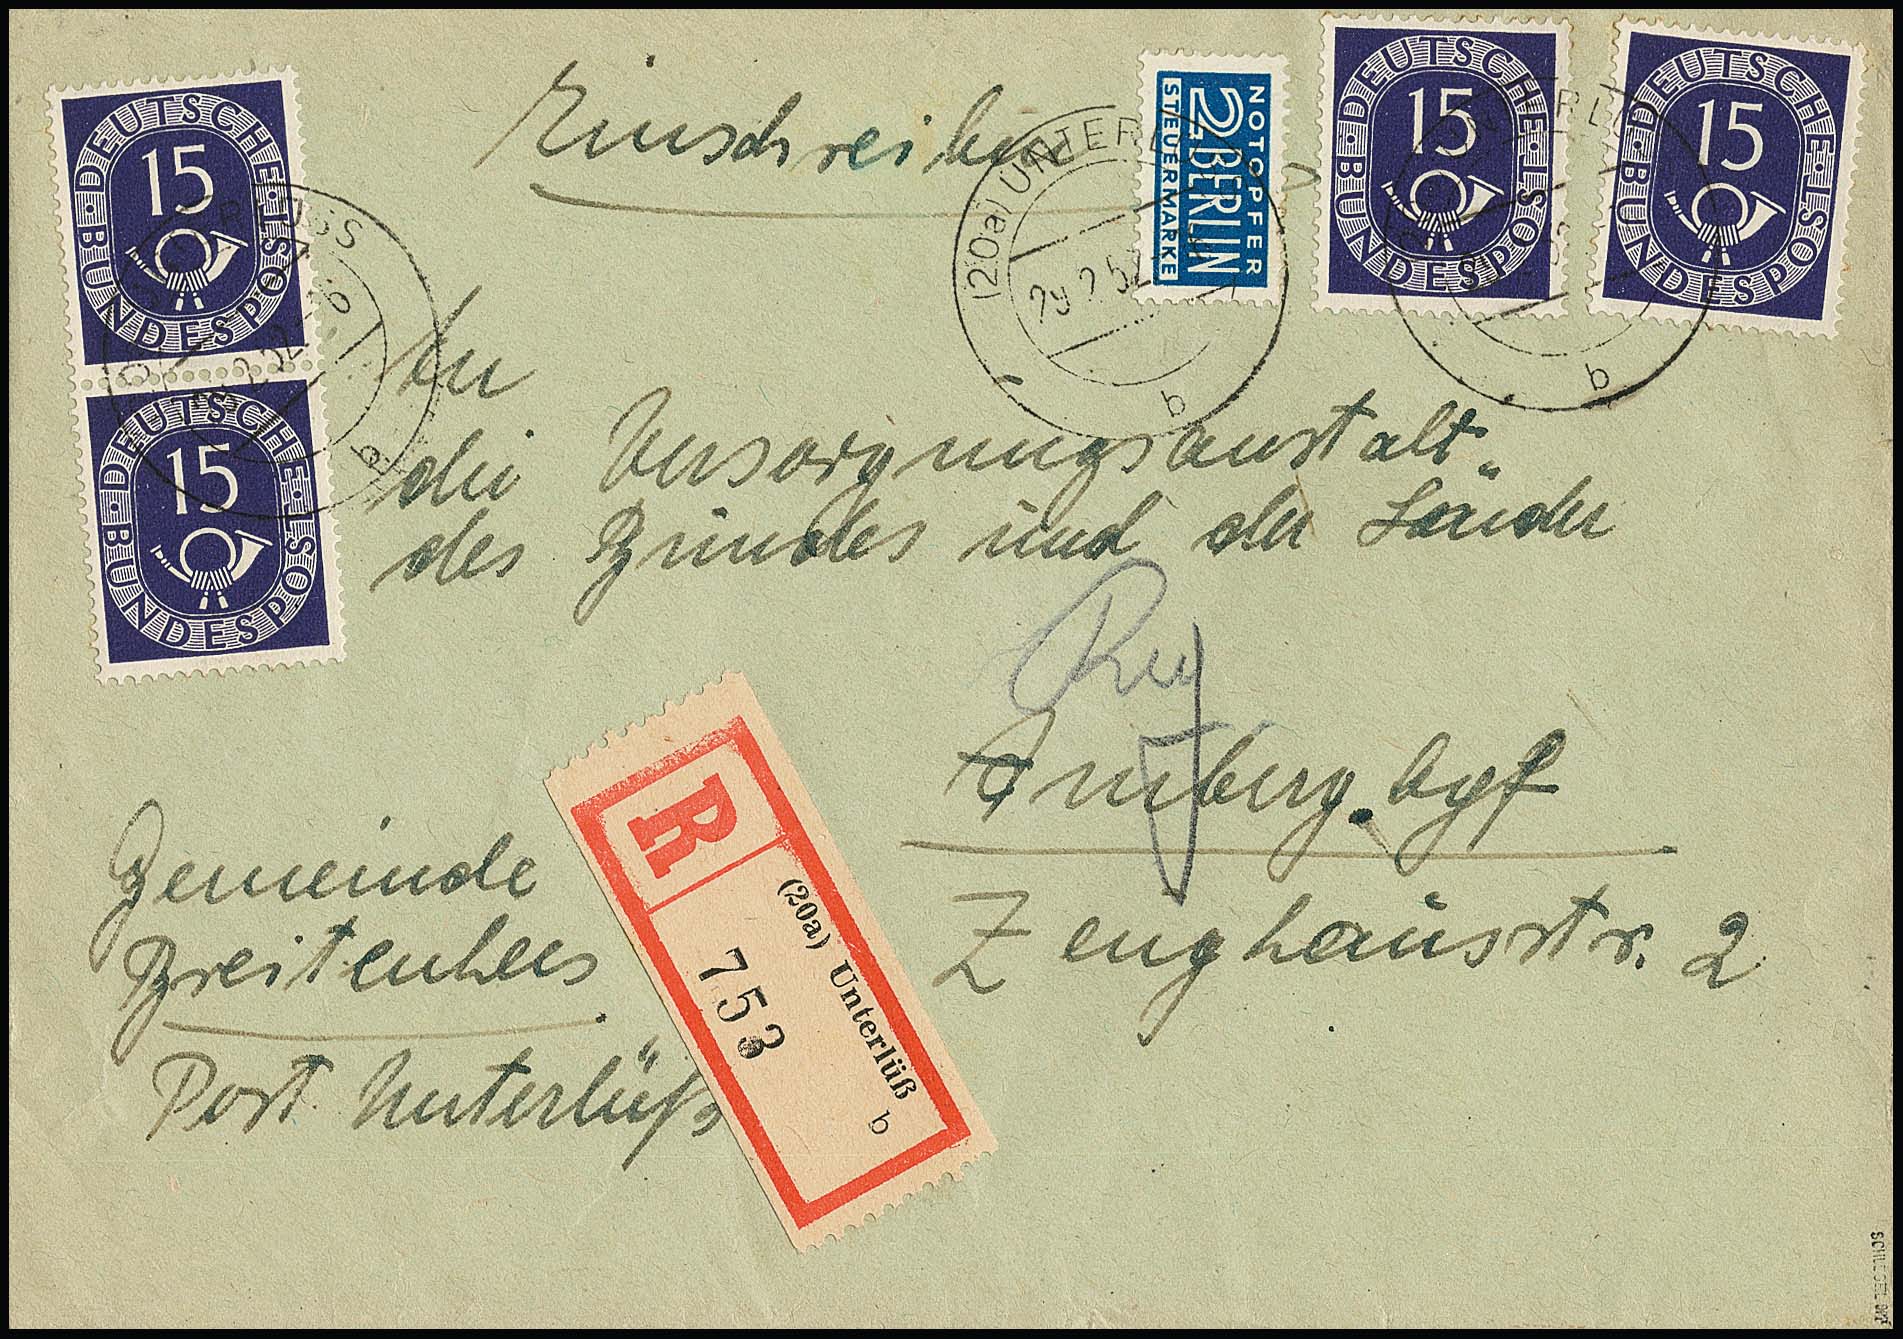 Einschreiben
15
DEUTSCHE BUNDESPOST
15
DEUTSCHE BUNDESPOST
NOTOPFER
2 BERLIN
STEUERMARKE
15
DEUTSCHE BUNDESPOST
15
DEUTSCHE BUNDESPOST
(20a) UNTERLÜSS
29.2.52
b
b
b
An
die Versorgungsanstalt
des Bundes und der Länder
Amberg.
Zeughausstr. 2
Gemeinde
Breitenhees
Post Unterlüß
R
(20a) Unterlüß
b
753
SCHLEGEL